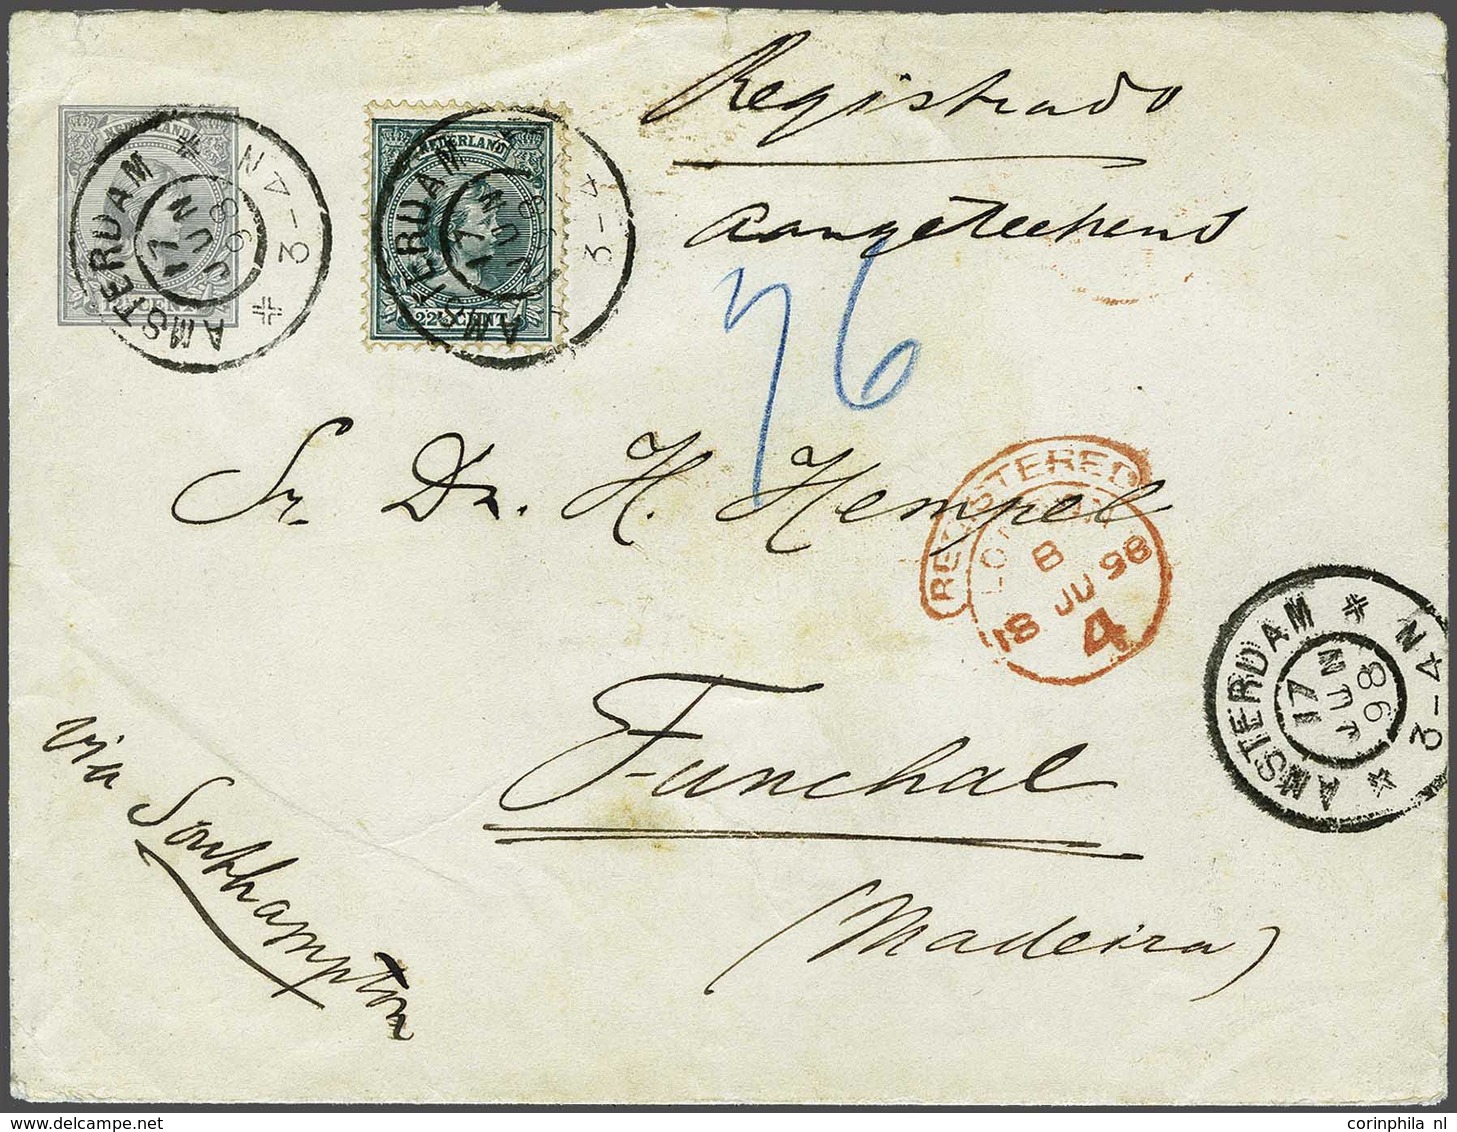 Registrado
Aangeteekend
NEDERLAND
CENT
AMSTERDAM
17 JUN 98
3-4 N
NEDERLAND
22½ CENT
AMSTERDAM
17 JUN 98
3-4 N
76
Sr. Dr. H. Hempel
REGISTERED
LONDON
B
18 JU 98
4
AMSTERDAM
17 JUN 98
3-4 N
Funchal
(Madeira)
via Southampton
corinphila nl